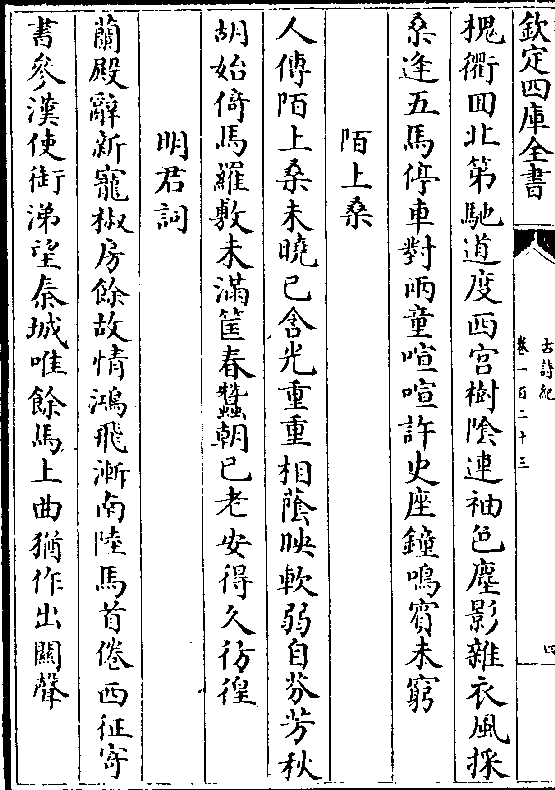 欽定四庫全書
古詩紀
卷一百二十三
四
槐衢回北第馳道度西宫樹隂連袖色塵影雜衣風採
桑逢五馬停車對兩童喧喧許史座鐘鳴賓未窮
陌上桑
人傳陌上桑未曉已含光重重相䕃映軟弱自芬芳秋
胡始倚馬羅敷未滿筐春蠶朝已老安得久彷徨
明君詞
蘭殿辭新寵椒房餘故情鴻飛漸南陸馬首倦西征寄
書參漢使銜涕望秦城唯餘馬上曲猶作出關聲